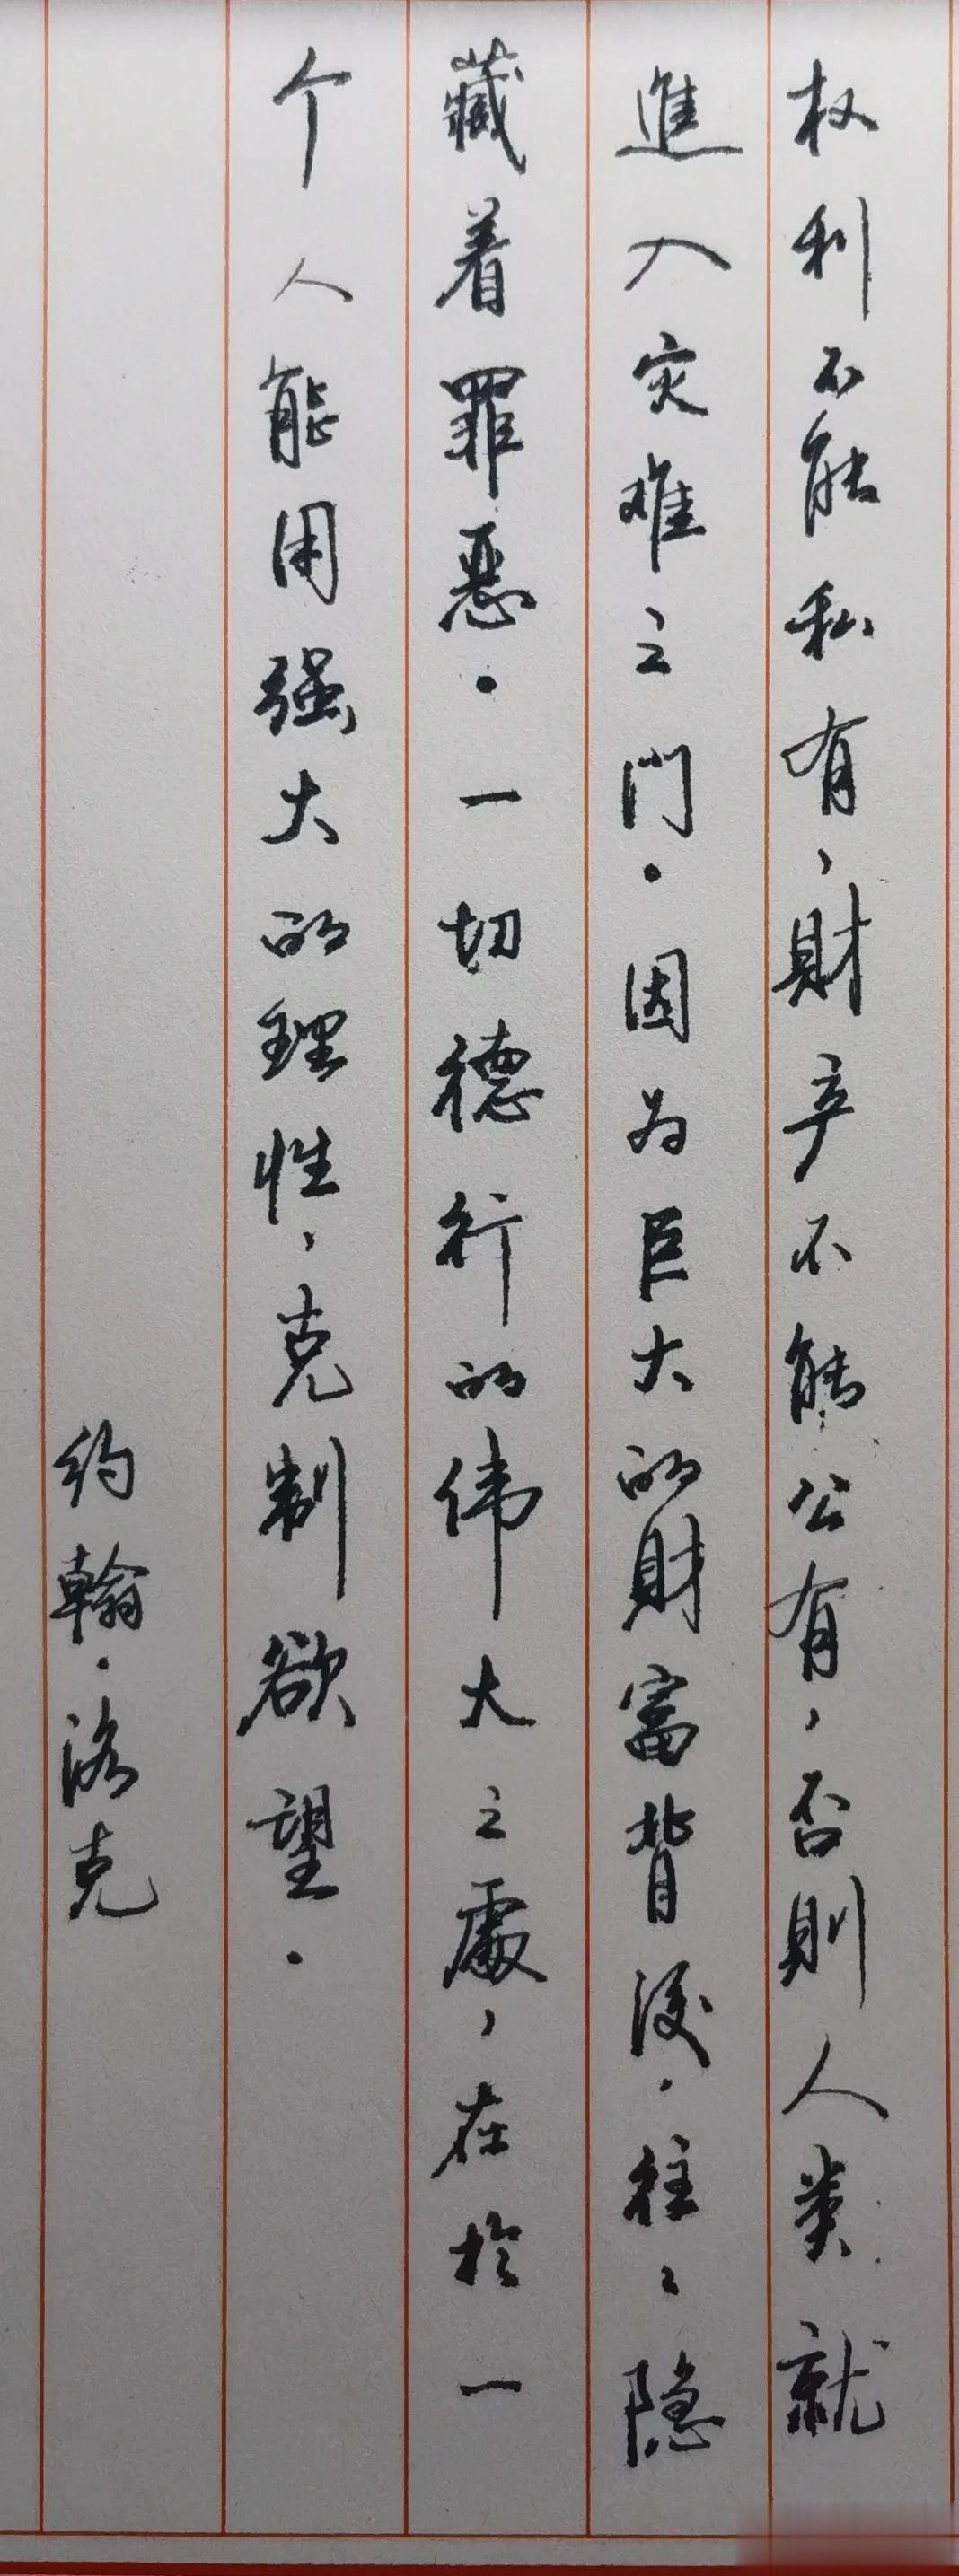 权利不能私有，財产不能公有，否則人类就
進入灾难之门．因为巨大的財富背後．往々隐
藏着罪惡．一切德行的伟大之處，在於一
个人能用强大的理性，克制欲望．
约翰·洛克